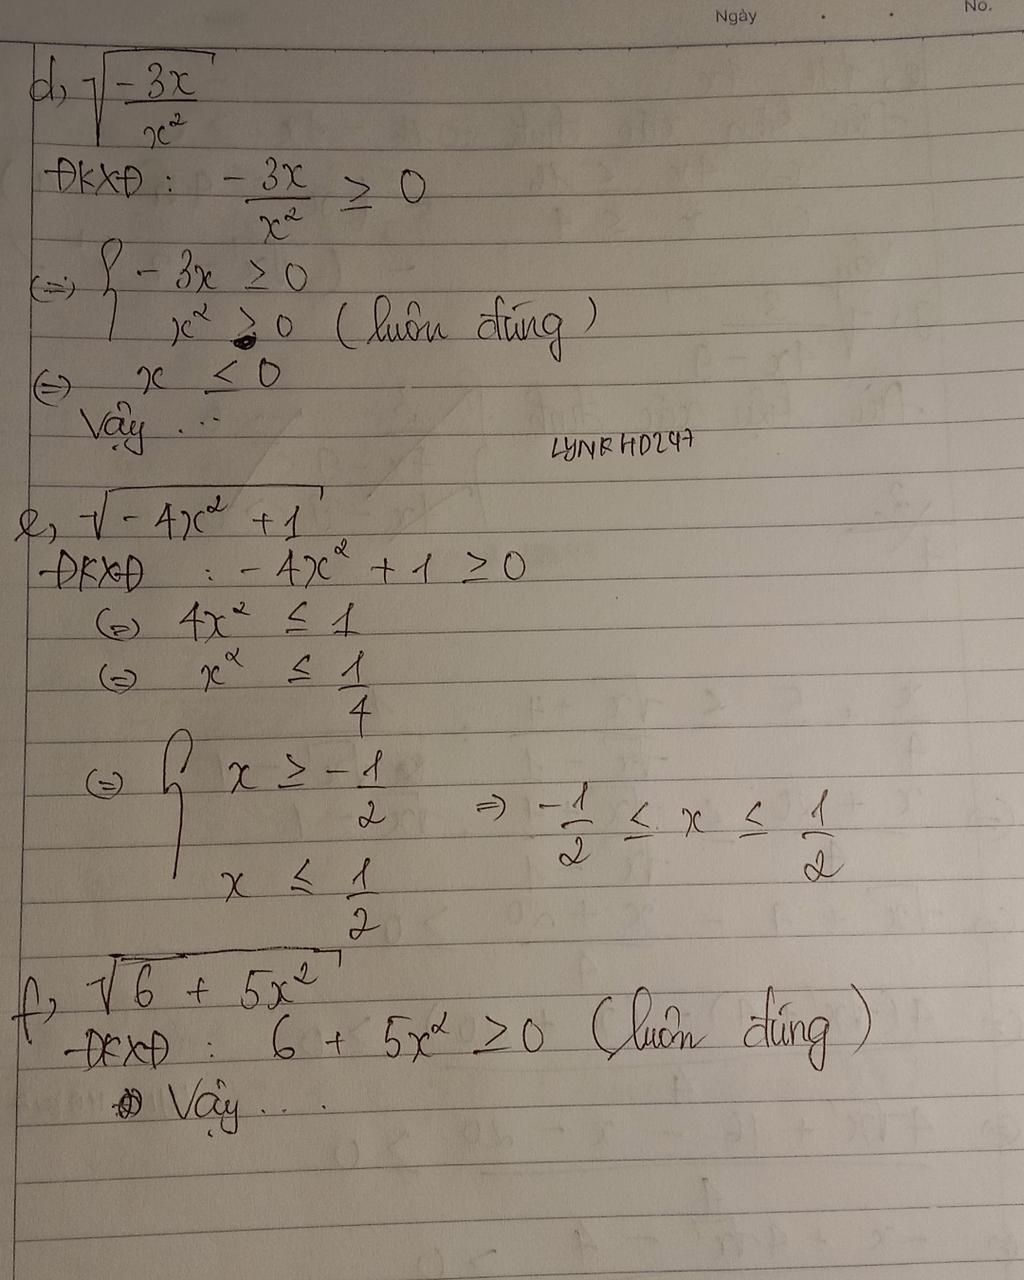 Ngày . . No.
d, √(-3x/x²)
ĐKXĐ : -3x/x² ≥ 0
(=) { -3x ≥ 0
x² ≥ 0 (luôn đúng)
(=) x < 0
Vậy ...
LYNRHD247
e, √(-4x² + 1)
ĐKXĐ : -4x² + 1 ≥ 0
(=) 4x² ≤ 1
(=) x² ≤ 1/4
(=) { x ≥ -1/2 => -1/2 ≤ x ≤ 1/2
x ≤ 1/2
f, √(6 + 5x²)
ĐKXĐ : 6 + 5x² ≥ 0 (luôn đúng)
Vậy ....